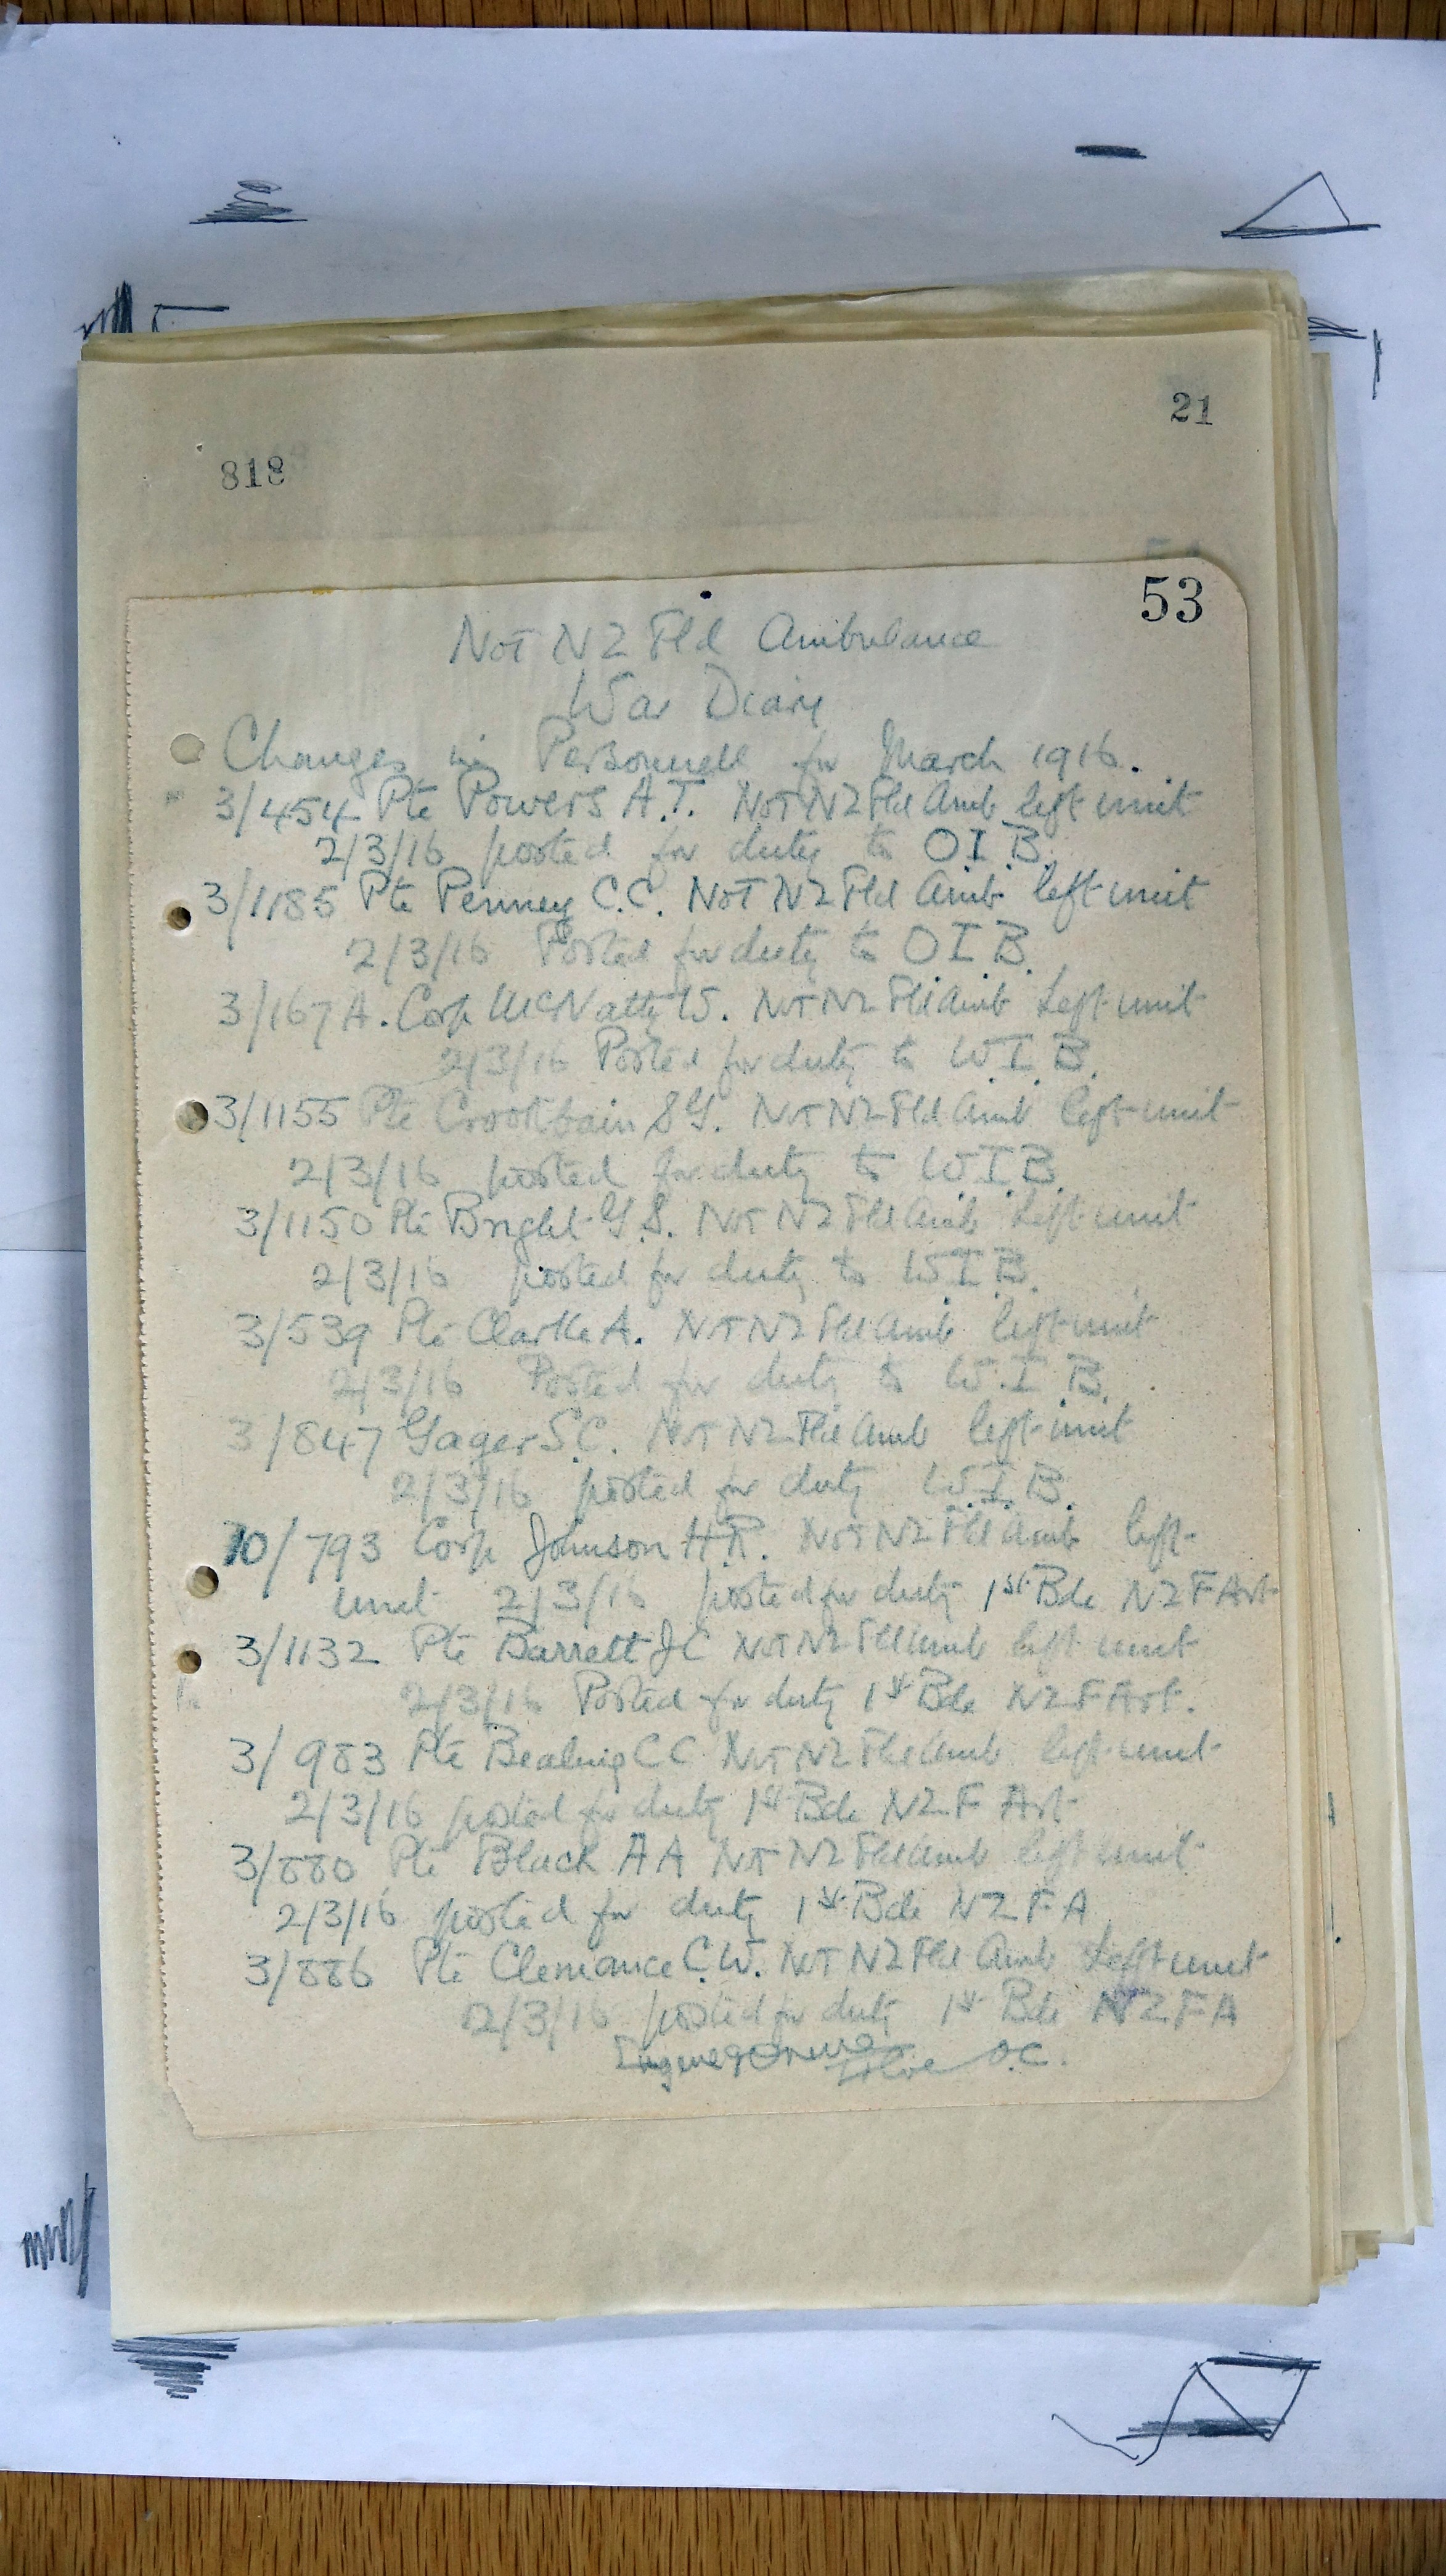 21
818
53
No1 NZ Fld Ambulance
War Diary
Changes in Personnell for March 1916.
3/454 Pte Powers A.T. No1 NZ Fld Amb left unit
2/3/16 posted for duty to O.I.B.
3/1185 Pte Penney C.C. No1 NZ Fld Amb left unit
2/3/16 Posted for duty to O.I.B.
3/167A. Corp McNatty W. No1 NZ Fld Amb Left unit
2/3/16 Posted for duty to W.I.B.
3/1155 Pte S G. No1 NZ Fld Amb left unit
2/3/16 posted for duty to W.I.B.
3/1150 Pte Bright G.S. No1 NZ Fld Amb Left unit
2/3/16 posted for duty to W.I.B.
3/539 Pte Clarke A. No1 NZ Fld Amb left unit
2/3/16 Posted for duty to W.I.B.
3/847 Gager S.C. No1 NZ Fld Amb left unit
2/3/16 posted for duty W.I.B.
10/793 Corp Johnson H.R. No1 NZ Fld Amb left
unit 2/3/16 posted for duty 1st Bde NZ F Art
3/1132 Pte Barrett J C No1 NZ Fld Amb left unit
2/3/16 Posted for duty 1st Bde NZ F Art.
3/983 Pte Bealing C C No1 NZ Fld Amb left unit
2/3/16 posted for duty 1st Bde NZ F Art
3/880 Pte Black A A No1 NZ Fld Amb left unit
2/3/16 posted for duty 1st Bde NZ F A
3/886 Pte Clemance C.W. No1 NZ Fld Amb Left unit
2/3/16 posted for duty 1st Bde NZ F A
O.C.